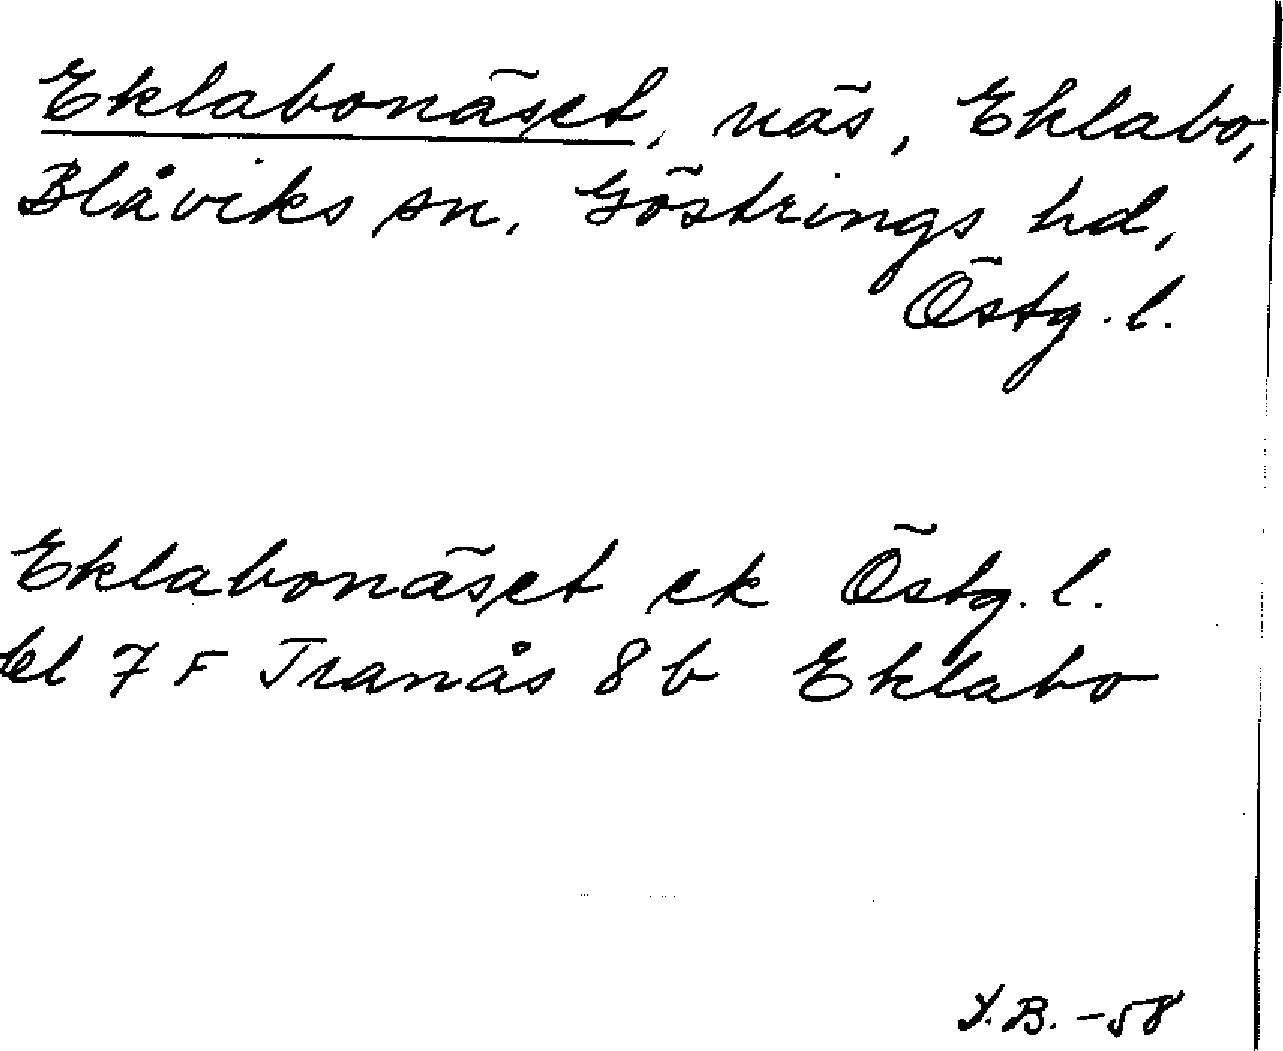 Eklabonäset, näs, Eklabo,
Blåviks sn, Göstrings hd,
Östg. l.
Eklabonäset ek Östg. l.
bl 7 F Tranås 8 b Eklabo
Y.B. -58